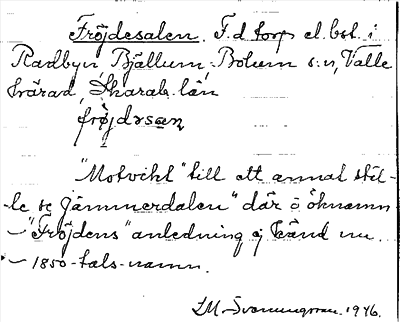 Fröjdesalen. F.d. torp el. bst. i
Radbyn Bjällum, Bolum s:n, Valle
härad, Skarab. län
frøjdrsaen
"Motvikt" till ett annat stäl-
le se Jämmerdalen" där ö öknamn
"Fröjdens" anledning ej känd nu.
1850-tals-namn.
LM. Svanungsson. 1946.